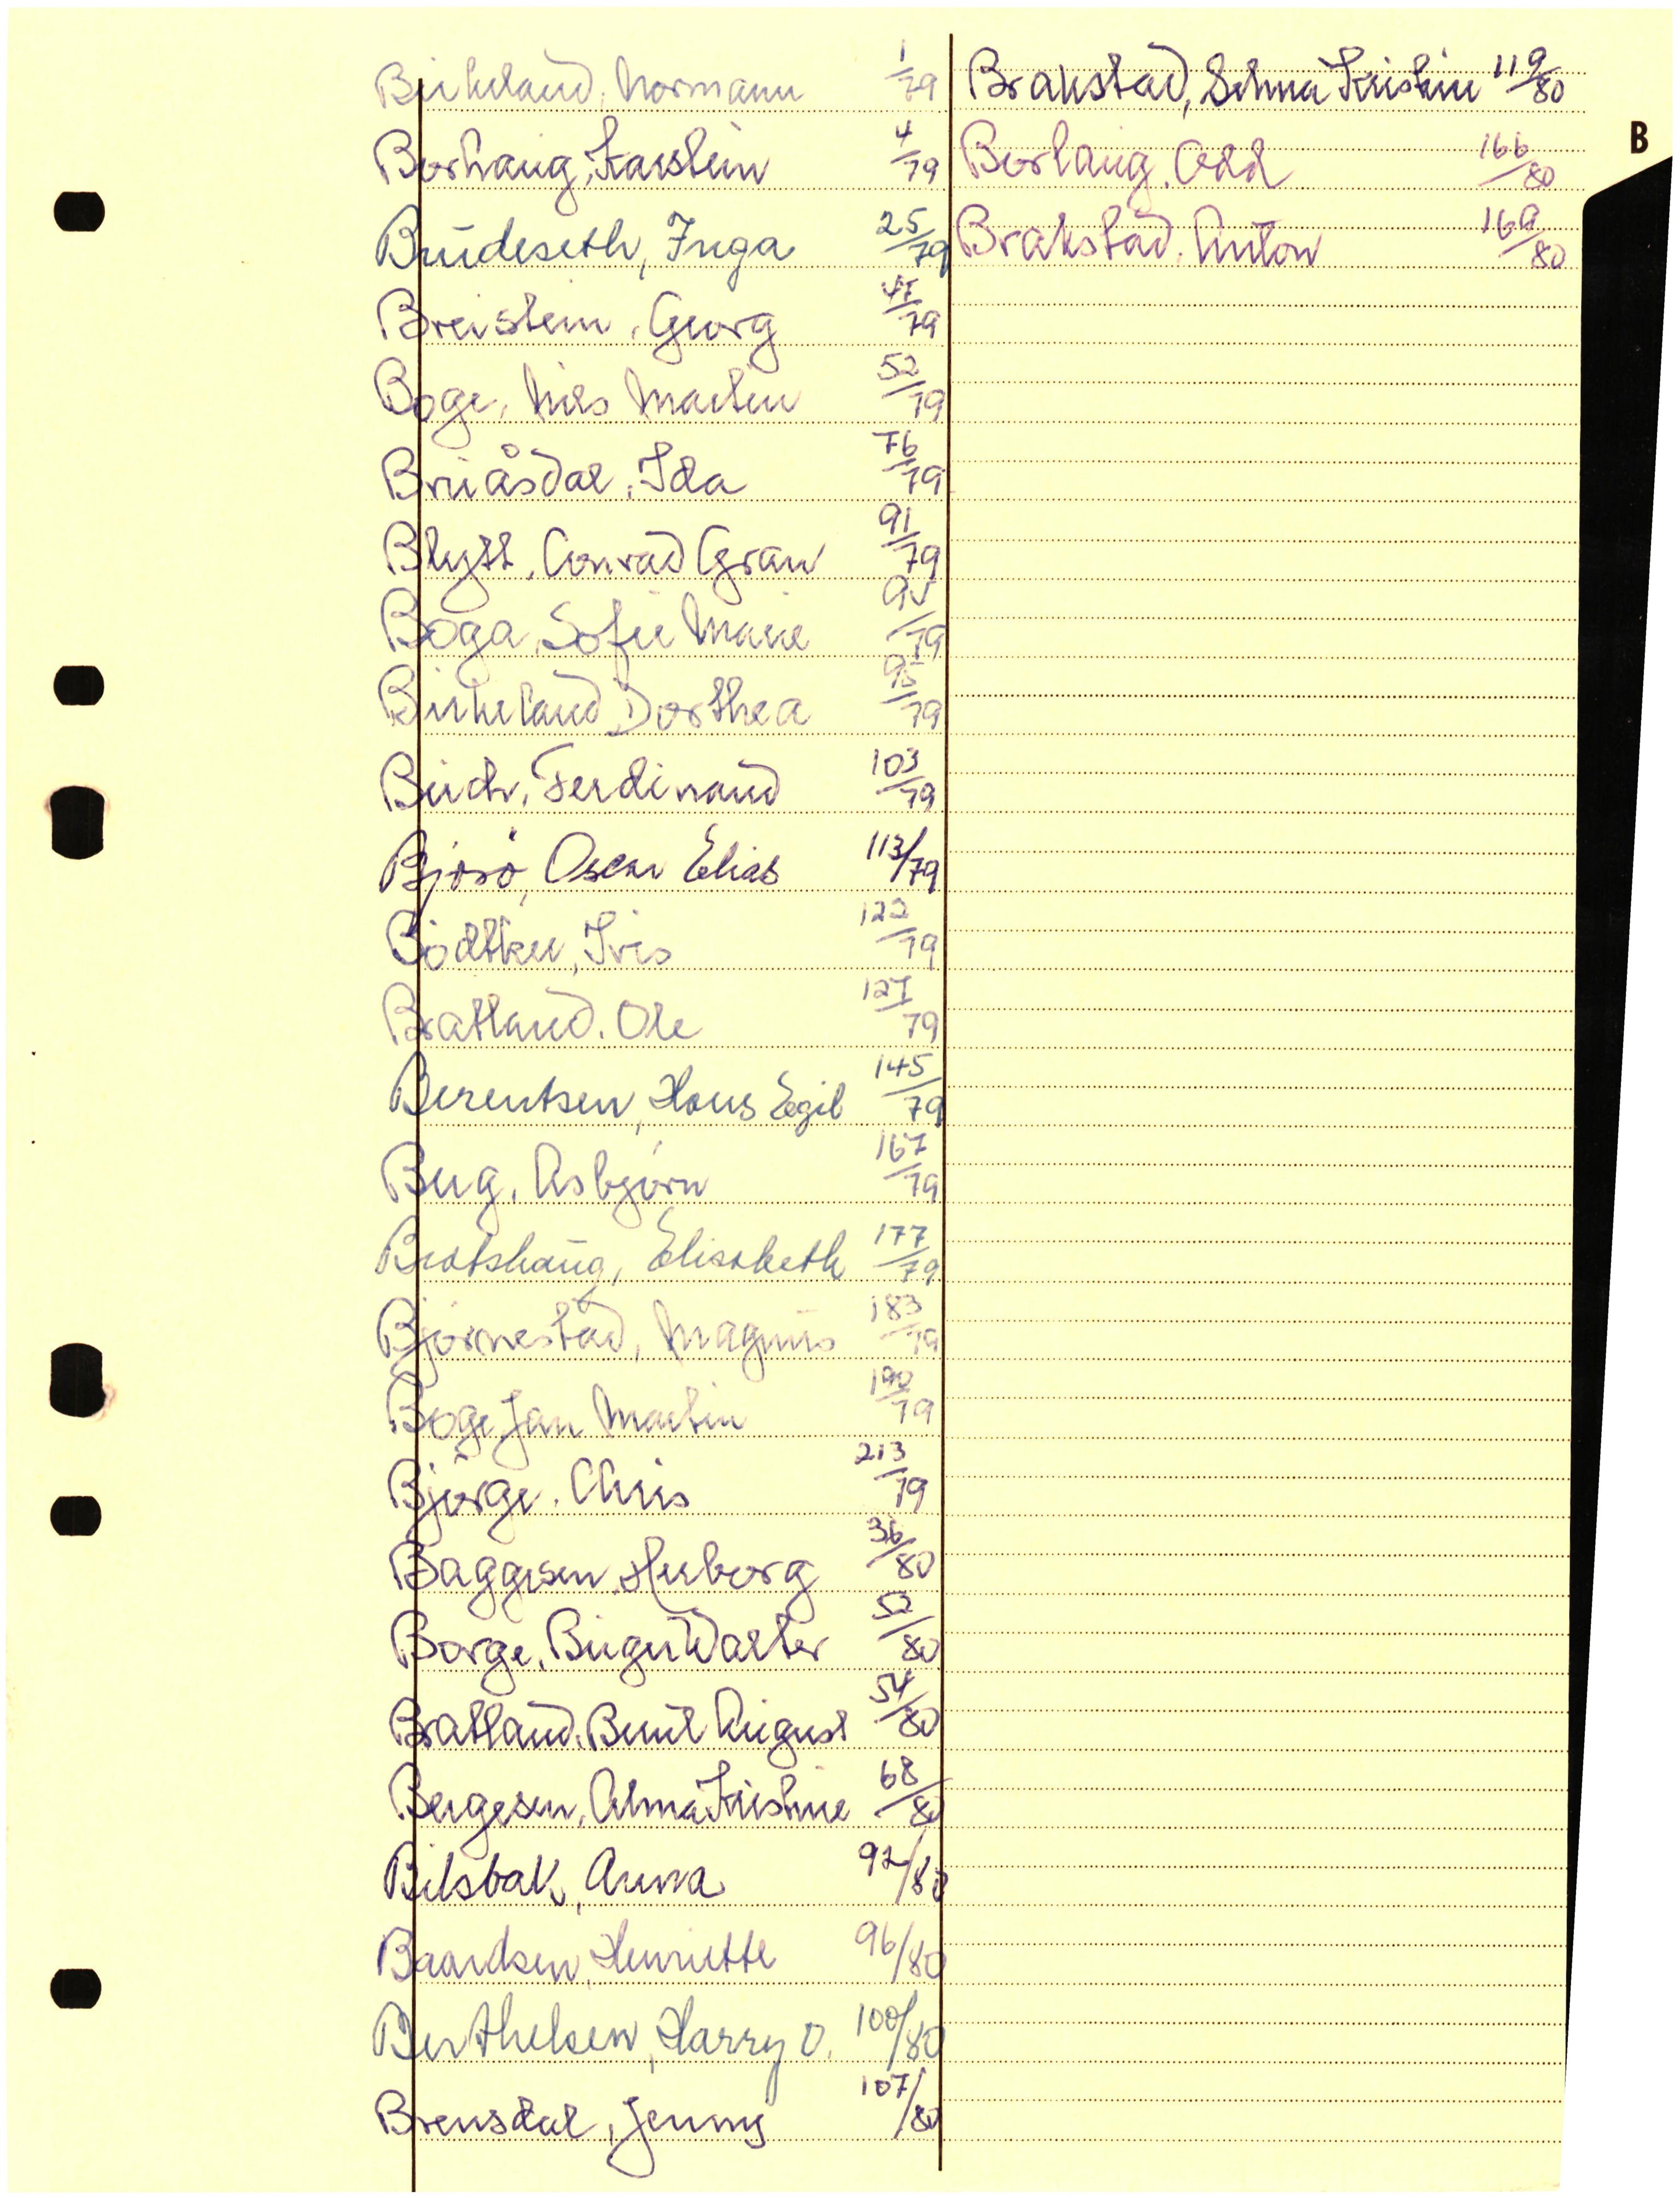 Birkeland, Normann 1/79
Borhaug, Karstein 4/79
Brudeseth, Inga 25/79
Breistein, Georg 47/79
Boge, Nils Martin 52/79
Bruåsdal, Ida 76/79
Blytt, Conrad Gran 91/79
Boga, Sofie Marie 95/79
Birkeland, Dorthea 95/79
Birch, Ferdinand 103/79
Bjorø, Oscar Elias 113/79
Bødtker, Iris 122/79
Bratland, Ole 127/79
Berentsen, Hans Egil 145/79
Berg, Asbjørn 167/79
Bratshaug, Elisabeth 177/79
Bjørnestad, Magnus 183/79
Boge, Jan Martin 190/79
Bjørge, Chris 213/79
Baggesen, Herborg 36/80
Borge, Birger Walter 52/80
Bratland, Bernt August 54/80
Bergesen, Alma Kristine 68/80
Bilsbak, Anna 92/80
Baardsen, Henriette 96/80
Berthelsen, Harry O. 100/80
Brensdal, Jenny 107/80
Brakstad, Selma Kristine 119/80
Borlaug, Odd 166/80
Brakstad, Anton 169/80
B